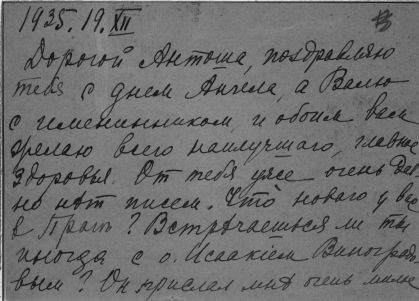 1935. 19. XII
Дорогой Антоша, поздравляю
тебя с днем Ангела, а Валю
с именинником, и обоим вам
желаю всего наилучшего, главное
здоровья. От тебя уже очень дав
но нѣт писем. Что новаго у вас
в Прагѣ? Встрѣчаешься ли ты
иногда с о. Исаакіем Виноградо
вым? Он прислал мнѣ очень милое